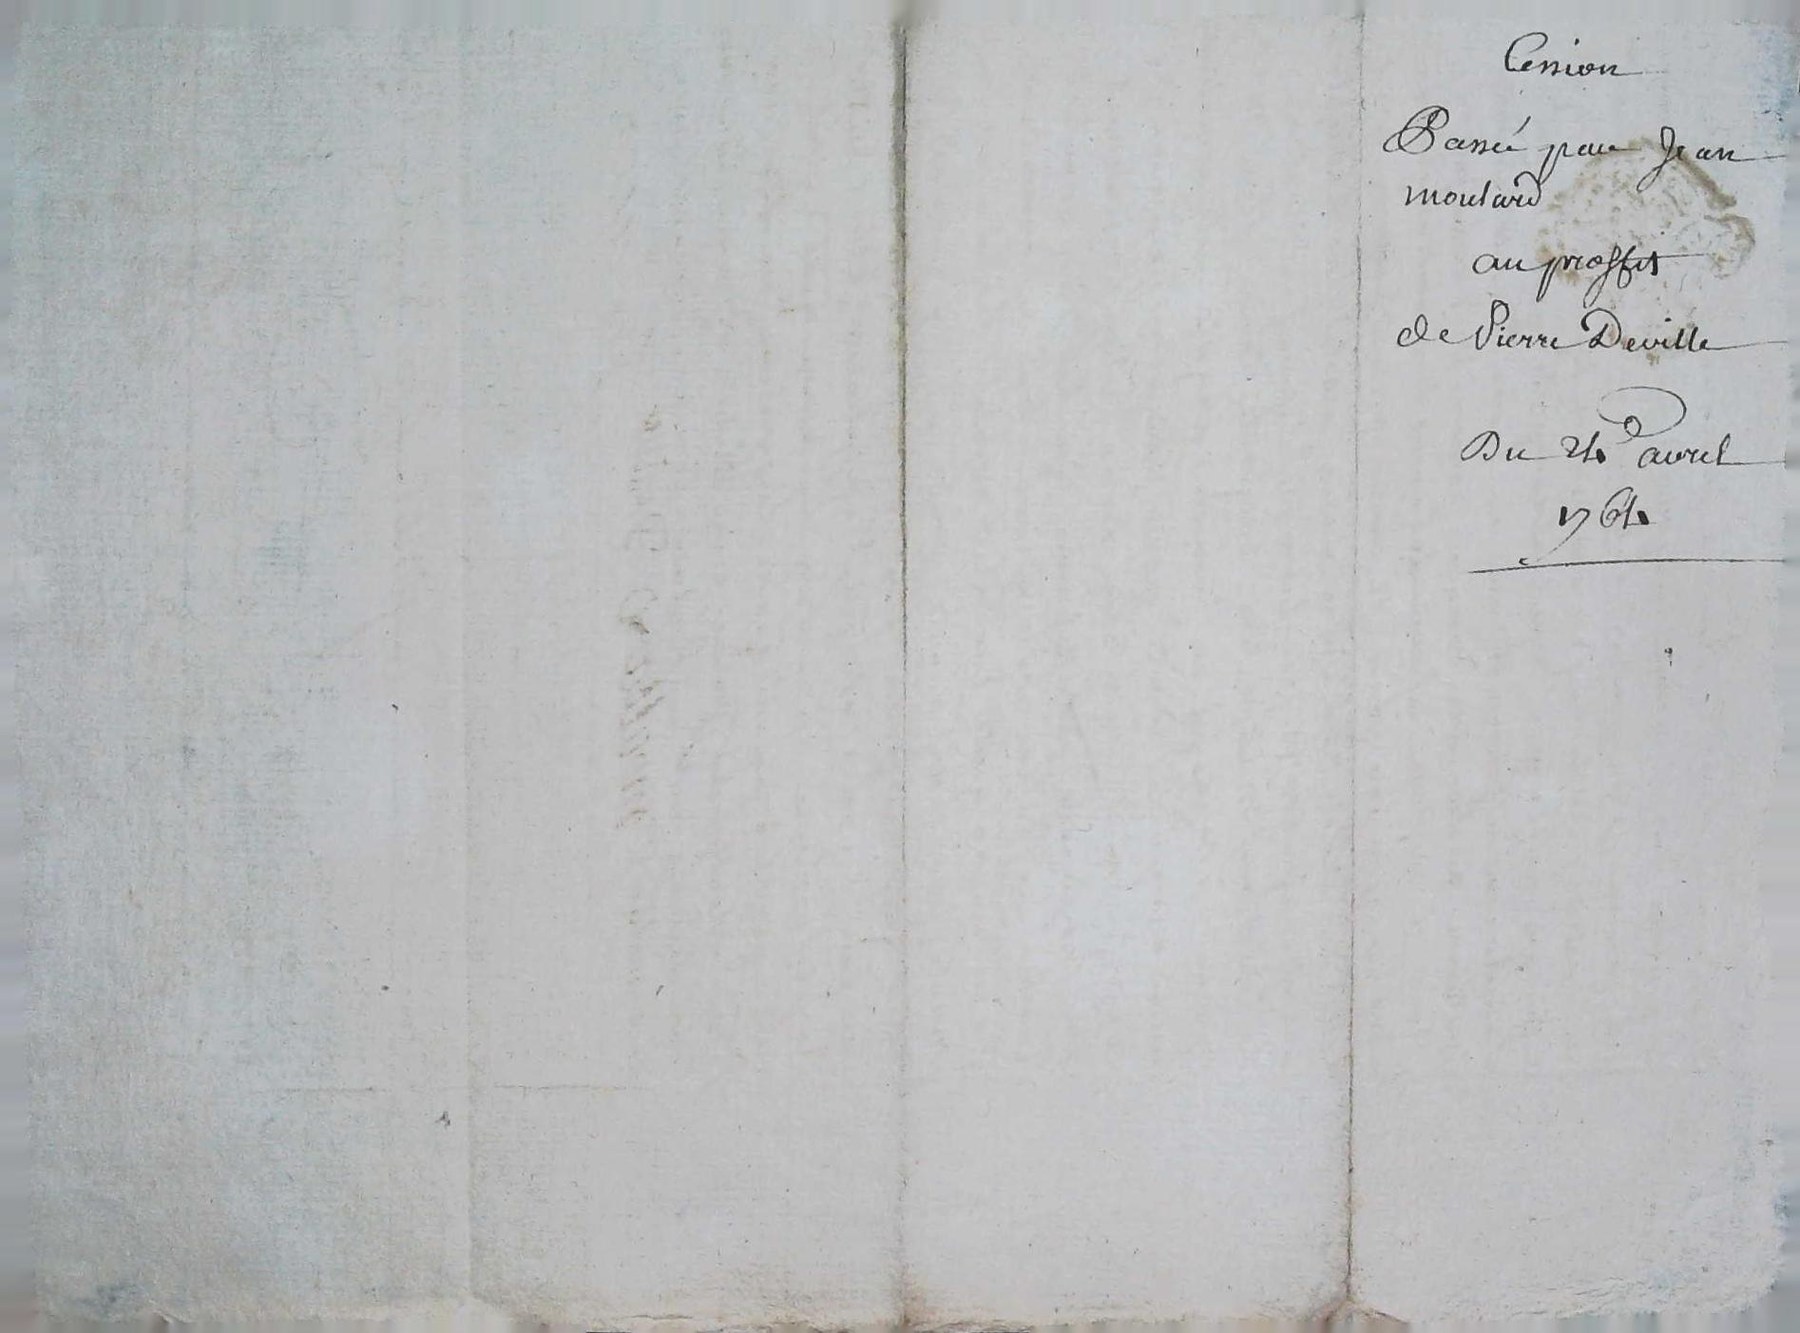 Cession
Passée par Jean
moulard
au proffit
de Pierre Deville
Du 24e avril
1764